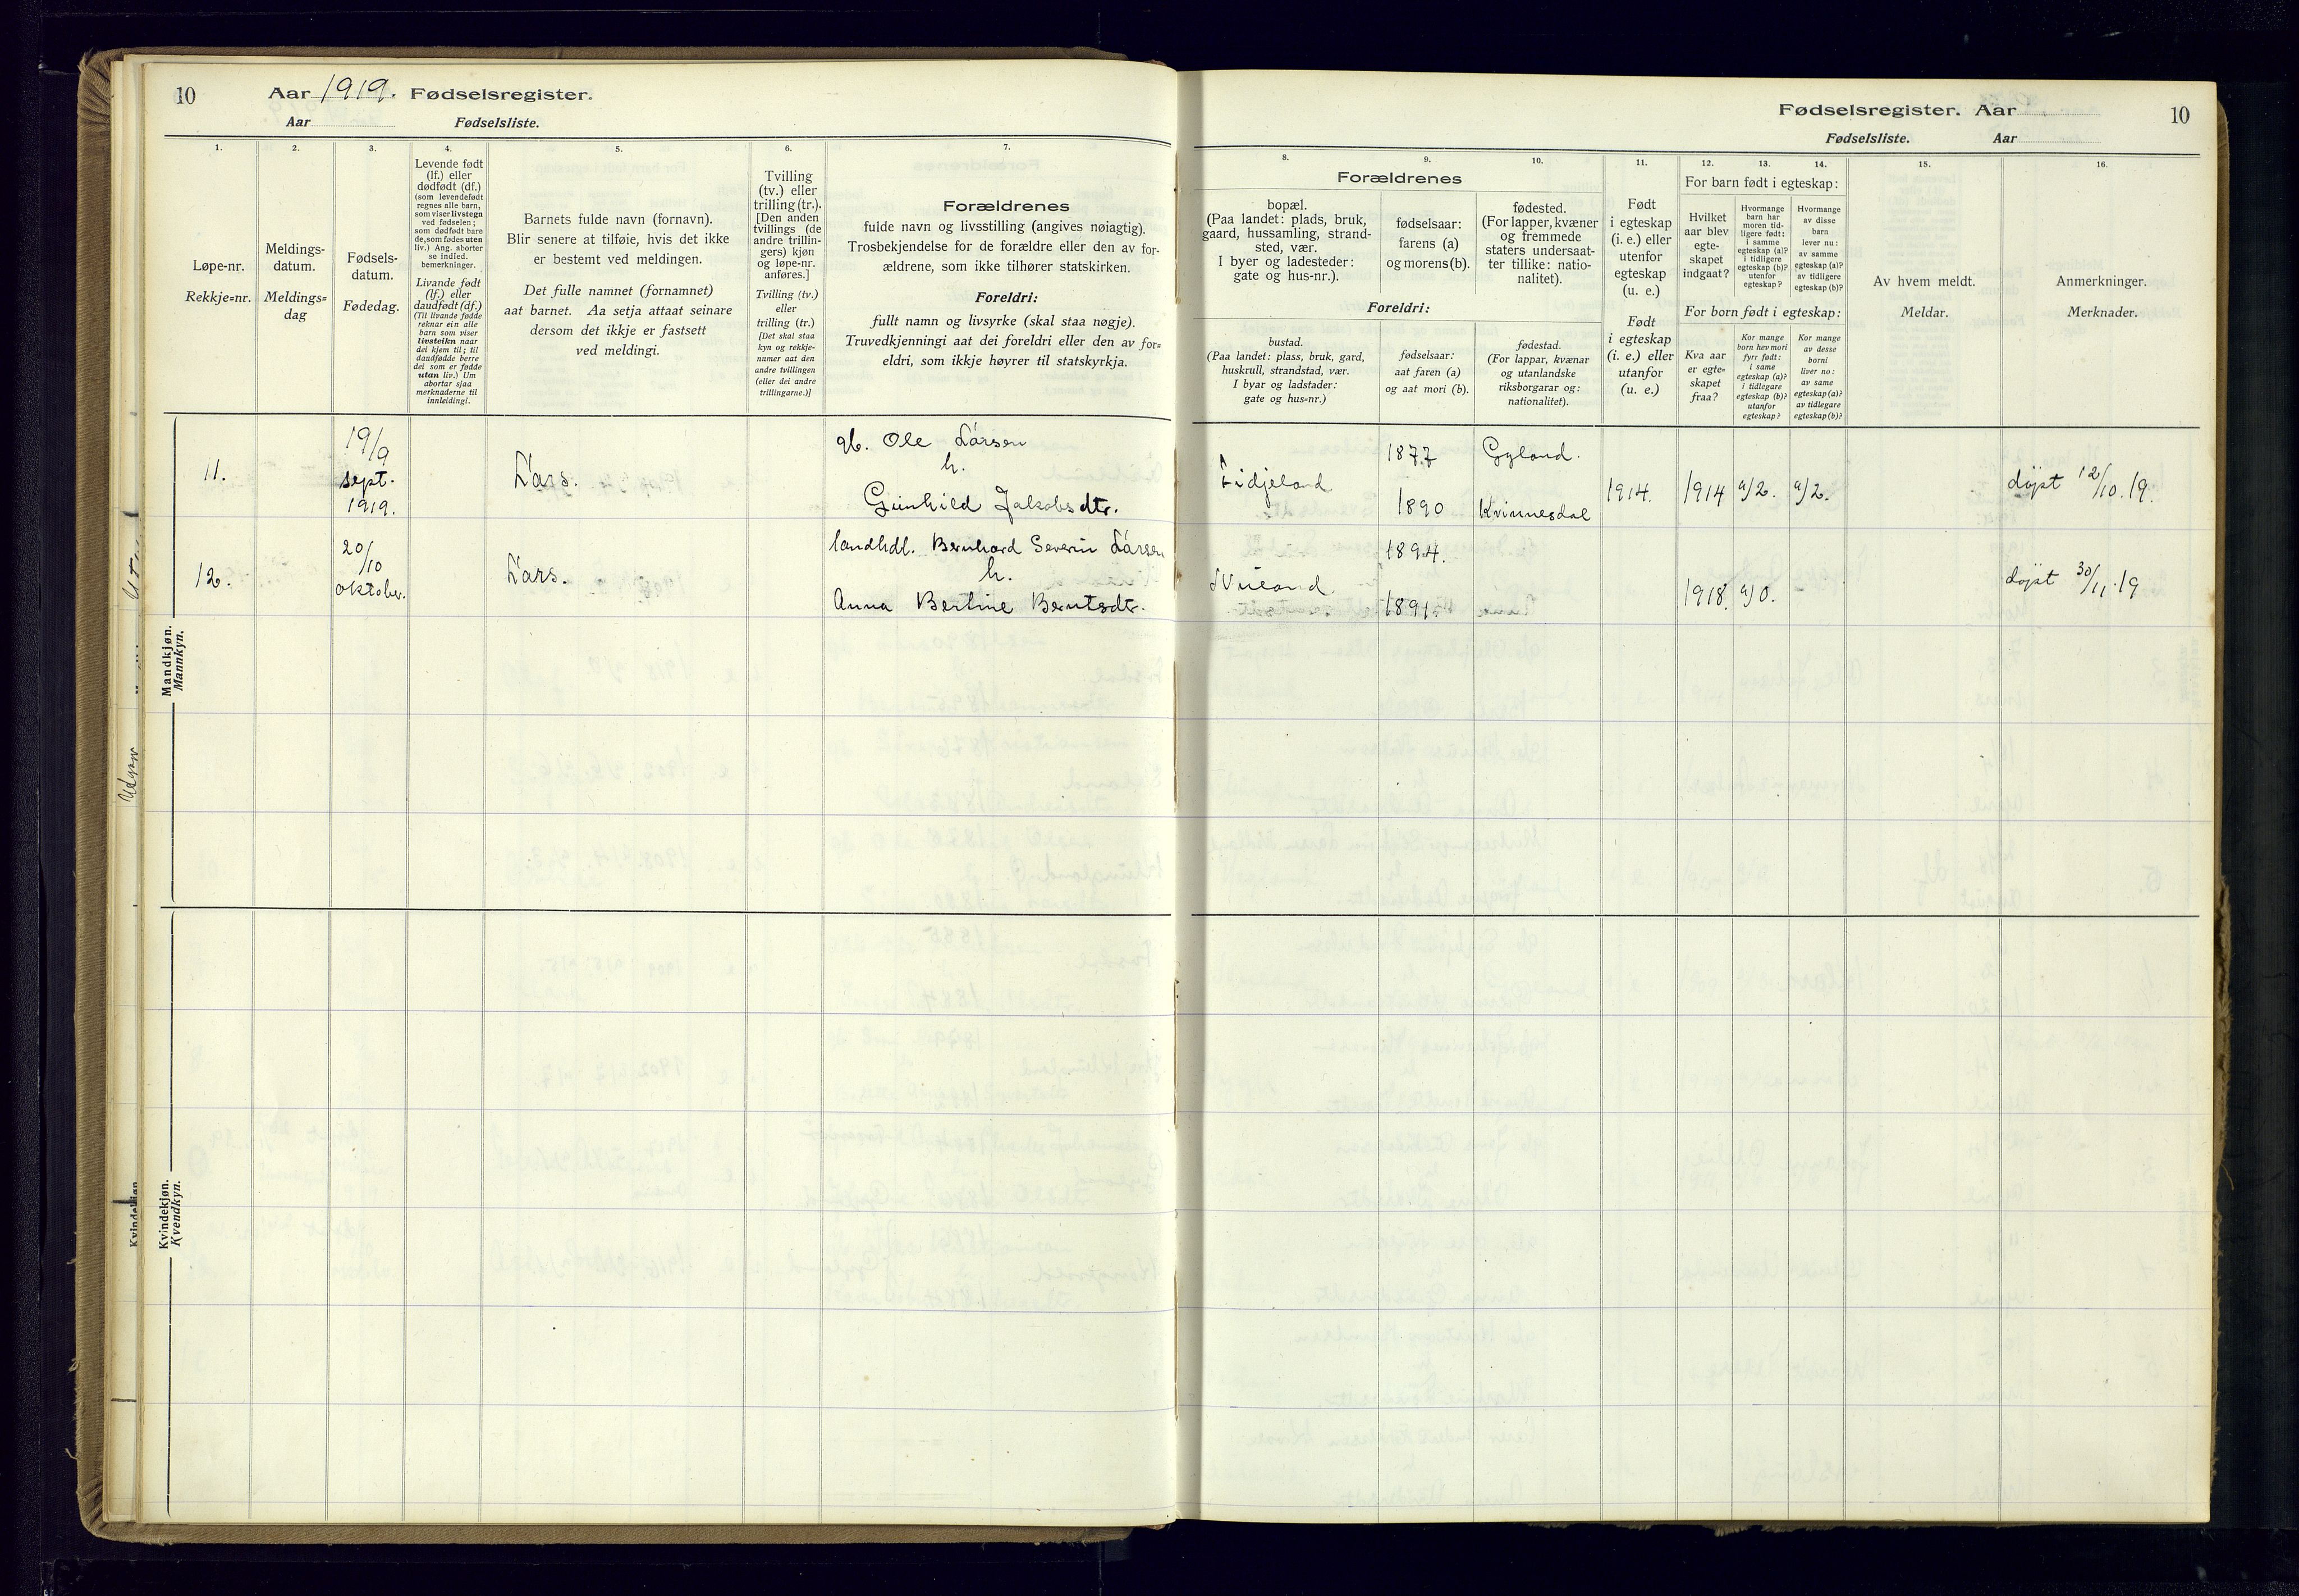 10 Aar 1919. Fødselsregister.
Aar Fødselsliste.
1. 2. 3. 4. 5. 6. 7.
Løpe-nr.
Rekkje=nr.
Meldings-
datum.
Meldings=
dag
Fødsels-
datum.
Fødedag.
Levende født
(lf.) eller
dødfødt (df.)
(som levendefødt
regnes alle barn,
som viser livstegn
ved fødselen;
som dødfødt bare
de, som fødes uten
liv.) Ang. aborter
se indled.
bemerkninger.
Livande født
(lf.) eller
daudfødt (df.)
(Til livande fødde
reknar ein alle
barn som viser
livsteikn naar
dei kjem til; til
daudfødde berre
dei som er fødde
utan liv.) Um
abortar sjaa
merknaderne til
innleidingi.
Barnets fulde navn (fornavn).
Blir senere at tilføie, hvis det ikke
er bestemt ved meldingen.
Det fulle namnet (fornamnet)
aat barnet. Aa setja attaat seinare
dersom det ikkje er fastsett
ved meldingi.
Tvilling
(tv.) eller
trilling (tr.).
[Den anden
tvillings (de
andre trillin-
gers) kjøn
og løpe-nr.
anføres.]
Tvilling (tv.)
eller
trilling (tr.)
[Det skal staa
kyn og rekkje-
numer aat den
andre tvillingen
(eller dei andre
trillingarne.)]
Forældrenes
fulde navn og livsstilling (angives nøiagtig).
Trosbekjendelse for de forældre eller den av for-
ældrene, som ikke tilhører statskirken.
Foreldri:
fullt namn og livsyrke (skal staa nøgje).
Truvedkjenningi aat dei foreldri eller den av for=
eldri, som ikkje høyrer til statskyrkja.
11.
19/9
sept.
1919.
Lars.
gb. Ole Larsen
h.
Gunhild Jakobsdtr.
12.
20/10
oktober.
Lars.
landhdl. Bernhard Severin Larsen
h.
Anna Bertine Berntsdtr.
Mandkjøn.
Mannkyn.
Kvindekjøn.
Kvendkyn.
Fødselsregister. Aar 10
Fødselsliste. Aar
8. 9. 10. 11. 12. 13. 14. 15. 16.
Forældrenes
bopæl.
(Paa landet: plads, bruk,
gaard, hussamling, strand-
sted, vær.
I byer og ladesteder:
gate og hus-nr.).
fødselsaar:
farens (a)
og morens (b).
fødested.
(For lapper, kvæner
og fremmede
staters undersaat-
ter tillike: natio-
nalitet).
Foreldri:
bustad.
(Paa landet: plass, bruk, gard,
huskrull, strandstad, vær.
I byar og ladstader:
gate og hus=nr.)
fødselsaar:
aat faren (a)
og aat mori (b).
fødestad.
(For lappar, kvænar
og utanlandske
riksborgarar og:
nationalitet).
Født
i egteskap
(i. e.) eller
utenfor
egteskap
(u. e.)
Født
i egteskap
(i. e.) eller
utanfor
(u. e.)
For barn født i egteskap:
Hvilket
aar blev
egte-
skapet
indgaat?
Hvormange
barn har
moren tid-
ligere født:
i samme
egteskap (a)?
i tidligere
egteskap (b)?
utenfor
egteskap?
Hvormange
av disse
barn
lever nu:
av samme
egteskap (a)?
av tidligere
egteskap (b)?
For born født i egteskap:
Kva aar
er egte=
skapet
fraa?
Kor mange
born hev mori
fyrr født:
i same
egteskap (a)?
i tidlegare
egteskap (b)?
utanfor
egteskap?
Kor mange
av desse
borni
liver no:
av same
egteskap (a)?
av tidlegare
egteskap (b)?
Av hvem meldt.
Meldar.
Anmerkninger.
Merknader.
Fidjeland
1877 Gyland.
1890 Kvinnesdal
1914. 1914 a/2. a/2.
døpt 12/10.19.
1894.
1891.
1918. a/0.
døpt 30/11.19